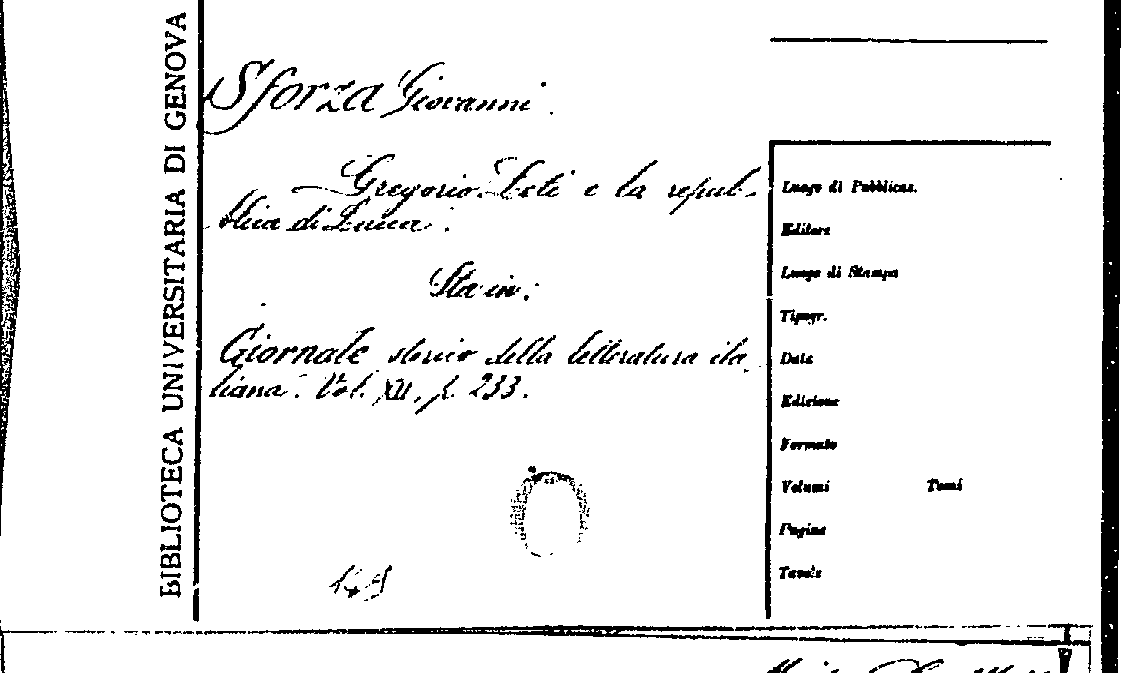 BIBLIOTECA UNIVERSITARIA DI GENOVA
Sforza Giovanni.
Gregorio Leti e la repub-
blica di Lucca.
Sta in:
Giornale storico della letteratura ita-
liana. Vol. XII, p. 233.
Luogo di Pubblicaz.
Editore
Luogo di Stampa
Tipogr.
Data
Edizione
Formato
Volumi Tomi
Pagine
Tavole